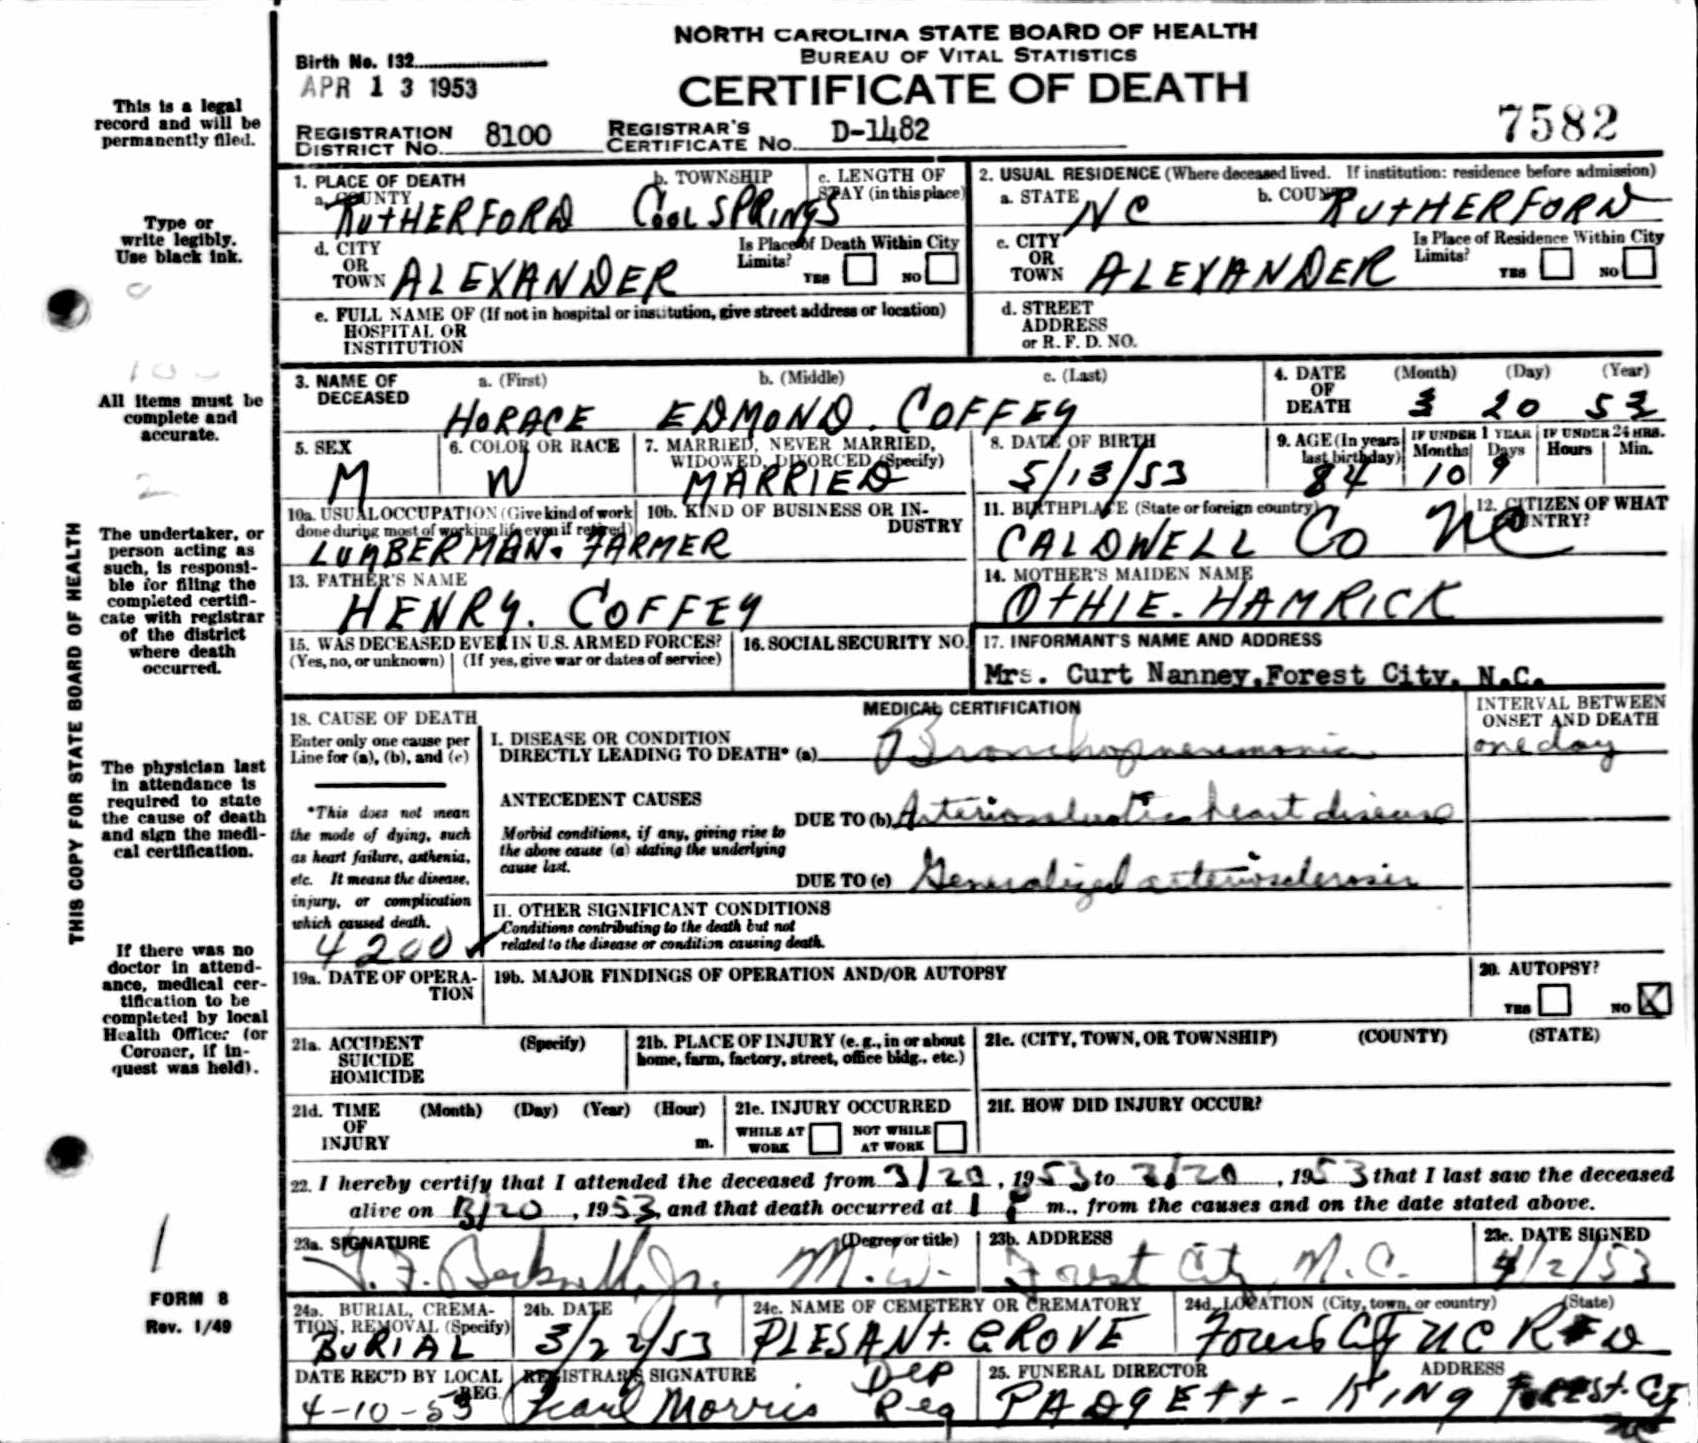 NORTH CAROLINA STATE BOARD OF HEALTH
BUREAU OF VITAL STATISTICS
CERTIFICATE OF DEATH
Birth No. 132
APR 13 1953
7582
REGISTRATION DISTRICT NO. 8100 REGISTRAR'S CERTIFICATE NO. D-1482
This is a legal record and will be permanently filed.
Type or write legibly. Use black ink.
All items must be complete and accurate.
The undertaker, or person acting as such, is responsible for filing the completed certificate with registrar of the district where death occurred.
The physician last in attendance is required to state the cause of death and sign the medical certification.
If there was no doctor in attendance, medical certification to be completed by local Health Officer (or Coroner, if inquest was held).
FORM 8
Rev. 1/49
THIS COPY FOR STATE BOARD OF HEALTH
1. PLACE OF DEATH
a. COUNTY RUTHERFORD b. TOWNSHIP COOL SPRINGS c. LENGTH OF STAY (in this place)
d. CITY OR TOWN ALEXANDER Is Place of Death Within City Limits? YES NO
e. FULL NAME OF (If not in hospital or institution, give street address or location) HOSPITAL OR INSTITUTION
2. USUAL RESIDENCE (Where deceased lived. If institution: residence before admission)
a. STATE NC b. COUNTY RUTHERFORD
c. CITY OR TOWN ALEXANDER Is Place of Residence Within City Limits? YES NO
d. STREET ADDRESS or R. F. D. NO.
3. NAME OF DECEASED a. (First) HORACE b. (Middle) EDMOND. c. (Last) COFFEY
4. DATE OF DEATH (Month) 3 (Day) 20 (Year) 53
5. SEX M
6. COLOR OR RACE W
7. MARRIED, NEVER MARRIED, WIDOWED, DIVORCED (Specify) MARRIED
8. DATE OF BIRTH 5/13/53
9. AGE (In years last birthday) 84 IF UNDER 1 YEAR Months 10 Days 9 IF UNDER 24 HRS. Hours Min.
10a. USUAL OCCUPATION (Give kind of work done during most of working life even if retired) LUMBERMAN. FARMER
10b. KIND OF BUSINESS OR INDUSTRY
11. BIRTHPLACE (State or foreign country) CALDWELL CO NC
12. CITIZEN OF WHAT COUNTRY?
13. FATHER'S NAME HENRY. COFFEY
14. MOTHER'S MAIDEN NAME OTHIE. HAMRICK
15. WAS DECEASED EVER IN U.S. ARMED FORCES? (Yes, no, or unknown) (If yes, give war or dates of service)
16. SOCIAL SECURITY NO.
17. INFORMANT'S NAME AND ADDRESS
Mrs. Curt Nanney, Forest City, N.C.
MEDICAL CERTIFICATION
INTERVAL BETWEEN ONSET AND DEATH
18. CAUSE OF DEATH
Enter only one cause per Line for (a), (b), and (c)
*This does not mean the mode of dying, such as heart failure, asthenia, etc. It means the disease, injury, or complication which caused death.
4200 ✓
I. DISEASE OR CONDITION DIRECTLY LEADING TO DEATH* (a) Bronchopneumonia one day
ANTECEDENT CAUSES
Morbid conditions, if any, giving rise to the above cause (a) stating the underlying cause last.
DUE TO (b) Arteriosclerotic heart disease
DUE TO (c) Generalized arteriosclerosis
II. OTHER SIGNIFICANT CONDITIONS
Conditions contributing to the death but not related to the disease or condition causing death.
19a. DATE OF OPERATION
19b. MAJOR FINDINGS OF OPERATION AND/OR AUTOPSY
20. AUTOPSY? YES NO X
21a. ACCIDENT SUICIDE HOMICIDE (Specify)
21b. PLACE OF INJURY (e. g., in or about home, farm, factory, street, office bldg., etc.)
21c. (CITY, TOWN, OR TOWNSHIP) (COUNTY) (STATE)
21d. TIME OF INJURY (Month) (Day) (Year) (Hour) m.
21e. INJURY OCCURRED WHILE AT WORK NOT WHILE AT WORK
21f. HOW DID INJURY OCCUR?
22. I hereby certify that I attended the deceased from 3/20, 1953 to 3/20, 1953 that I last saw the deceased
alive on 3/20, 1953, and that death occurred at 1 P m., from the causes and on the date stated above.
23a. SIGNATURE (Degree or title) M.D.
23b. ADDRESS Forest City, N.C.
23c. DATE SIGNED 4/2/53
24a. BURIAL, CREMATION, REMOVAL (Specify) BURIAL
24b. DATE 3/22/53
24c. NAME OF CEMETERY OR CREMATORY PLESANT. GROVE
24d. LOCATION (City, town, or country) (State) Forest City NC RFD
DATE REC'D BY LOCAL REG. 4-10-53
REGISTRAR'S SIGNATURE Pearl Morris Dep Reg
25. FUNERAL DIRECTOR ADDRESS PADGETT - KING FOREST. City NC